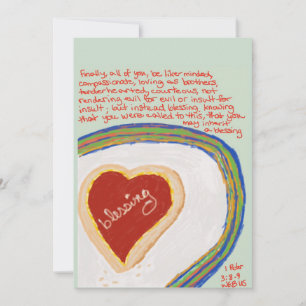 Finally, all of you, be likeminded,
compassionate, loving as brothers,
tenderhearted, courteous, not
rendering evil for evil or insult for
insult; but instead blessing, knowing
that you were called to this, that you
may inherit
a blessing
blessing
1 Peter
3:8-9
WEB US